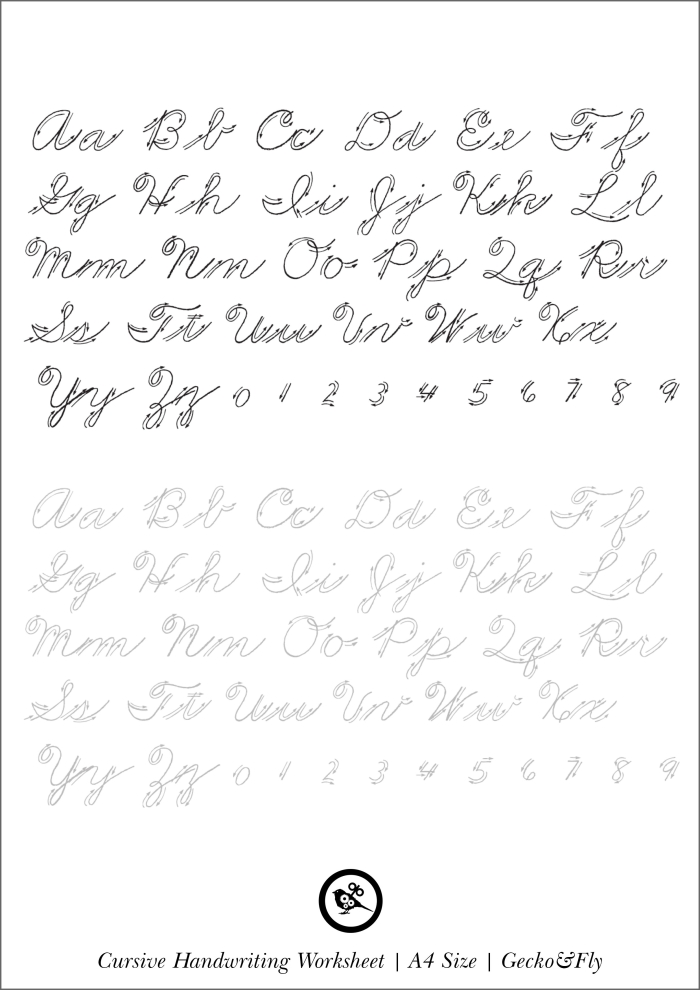 Aa Bb Cc Dd Ee Ff
Gg Hh Ii Jj Kk Ll
Mm Nn Oo Pp Qq Rr
Ss Tt Uu Vv Ww Xx
Yy Zz 0 1 2 3 4 5 6 7 8 9
Aa Bb Cc Dd Ee Ff
Gg Hh Ii Jj Kk Ll
Mm Nn Oo Pp Qq Rr
Ss Tt Uu Vv Ww Xx
Yy Zz 0 1 2 3 4 5 6 7 8 9
Cursive Handwriting Worksheet | A4 Size | Gecko&Fly